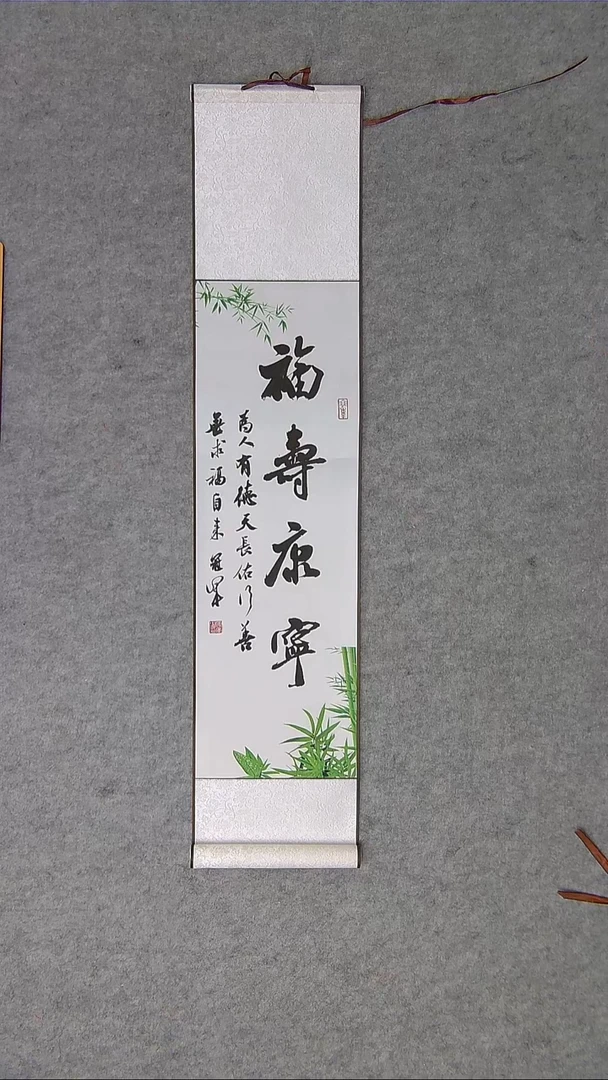 福壽康寧
為人有德天長佑行善
無求福自来